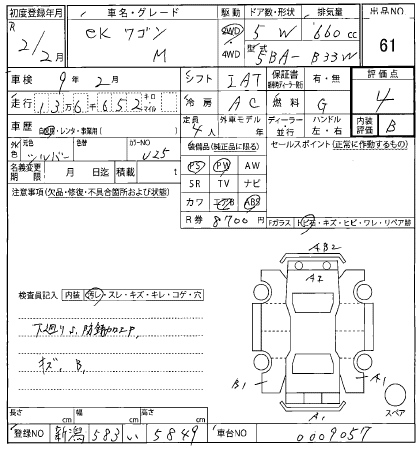 初度登録年月 車名・グレード 駆動 ドア数・形状 排気量 出品NO
R 2/2月 eK ワゴン M 2WD 4WD 5 W 660cc 61
型式 5BA- B33W
車検 9年 2月 シフト IAT 保証書 有・無 評価点
走行 13万6千652 キロ マイル 冷房 AC 燃料 G 4
車歴 自家用・レンタ・事業用( ) 定員 4人 外車モデル 年 ディーラー 並行 ハンドル 左・右 内装評価 B
外色 元色 シルバー 色替 カラーNO U25 装備品(純正品に限る) セールスポイント(正常に動作するもの)
名義変更期限 月 日迄 積載 t PS PW AW
注意事項(欠品・修復・不具合箇所および状態) SR TV ナビ
カワ エアB ABS
R券 8700円 Fガラス トビ石・キズ・ヒビ・ワレ・リペア跡
AB2
A2
検査員記入 内装 汚レ・スレ・キズ・キレ・コゲ・穴
下廻りS.防錆カロエP.
キズ、B,
B1 A1
A1 スペア
長さ cm 幅 cm 高さ cm
登録NO 新潟 583 い 5849 車台NO 0009057